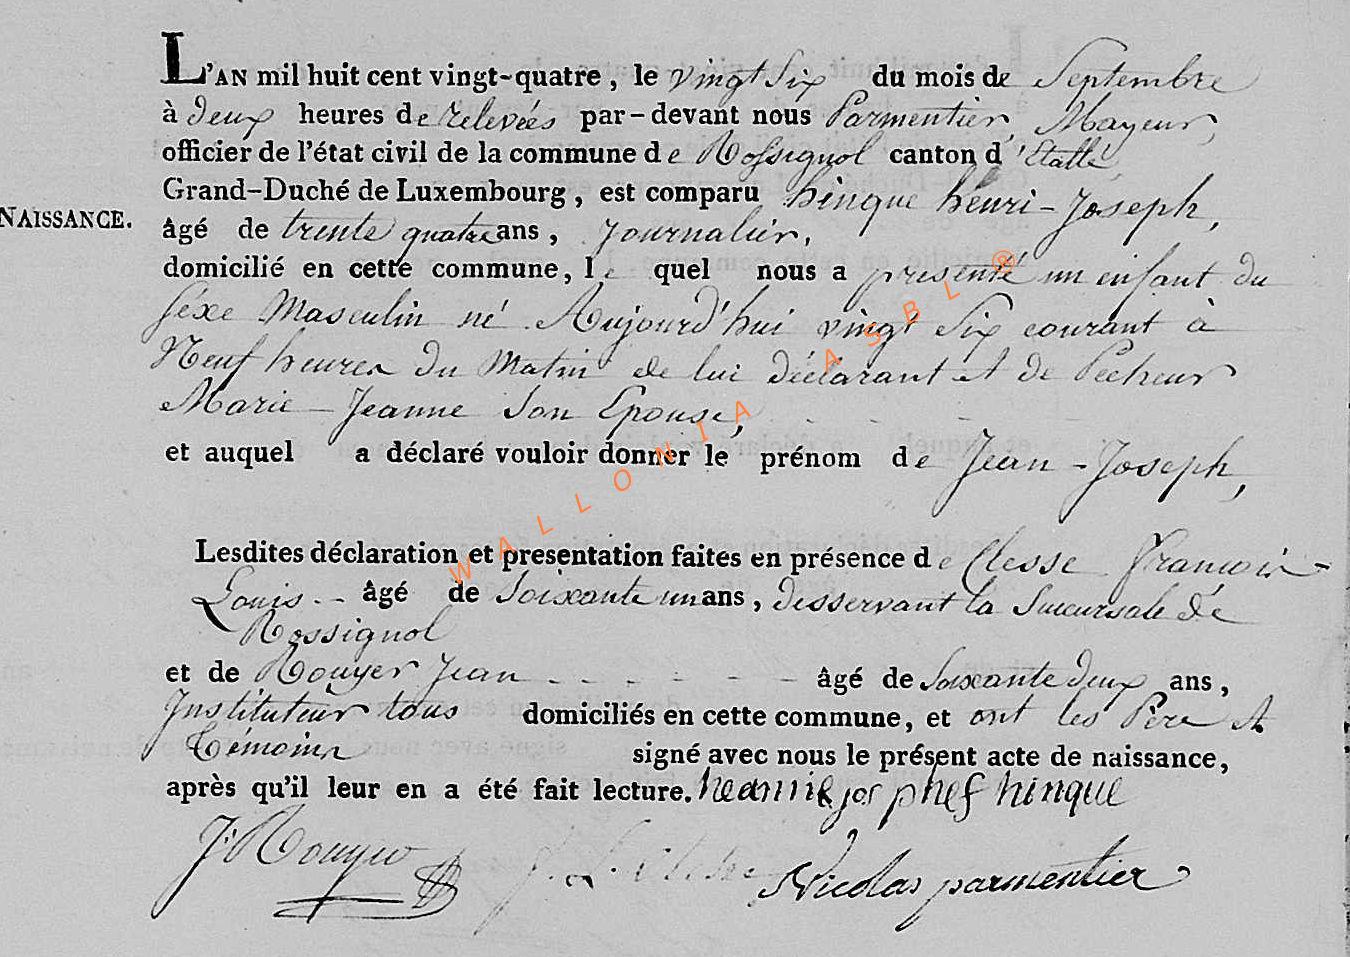 L'AN mil huit cent vingt-quatre, le vingt Six du mois de Septembre
à deux heures de relevées par-devant nous Parmentier, Mayeur,
officier de l'état civil de la commune de Rossignol canton d'Etalle
Grand-Duché de Luxembourg, est comparu hinque henri-Joseph,
NAISSANCE.
âgé de trente quatre ans, Journalier,
domicilié en cette commune, le quel nous a presenté un enfant du
séxe Masculin né Aujourd'hui vingt Six courant à
Neuf heures du Matin de lui déclarant et de Pecheur
Marie-Jeanne Son Epouse,
et auquel a déclaré vouloir donner le prénom de Jean-Joseph,
Lesdites déclaration et presentation faites en présence de Clesse Francois-
Louis - âgé de Soixante un ans, desservant la Succursale de
Rossignol
et de Rouyer Jean - - - - - - âgé de Soixante deux ans,
Instituteur tous domiciliés en cette commune, et ont les Père et
Témoins signé avec nous le présent acte de naissance,
après qu'il leur en a été fait lecture. hearnik jos phef hinque
J: Rouyer
Nicolas parmentier
WALLONIA ASBL ®